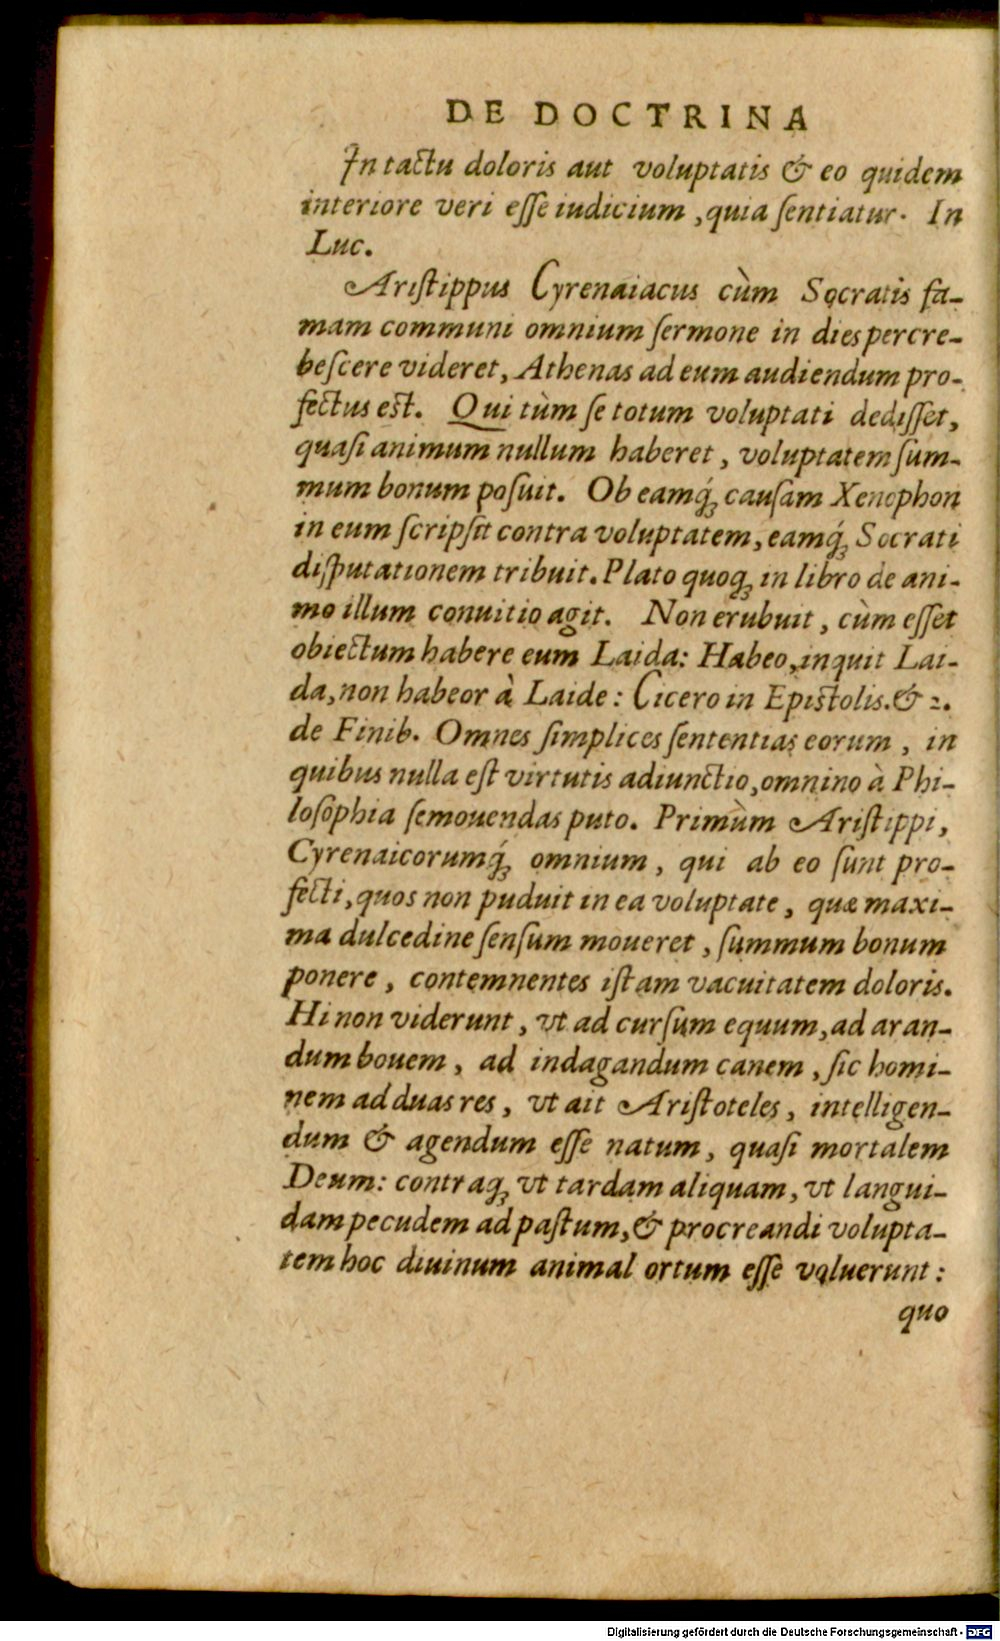 DE DOCTRINA
In tactu doloris aut voluptatis & eo quidem
interiore veri eſſe iudicium, quia ſentiatur. In
Luc.
Ariſtippus Cyrenaiacus cùm Socratis fa-
mam communi omnium ſermone in dies percre-
beſcere videret, Athenas ad eum audiendum pro-
fectus eſt. Qui tùm ſe totum voluptati dediſſet,
quaſi animum nullum haberet, voluptatem ſum-
mum bonum poſuit. Ob eamq́; cauſam Xenophon
in eum ſcripſit contra voluptatem, eamq́; Socrati
diſputationem tribuit. Plato quoq; in libro de ani-
mo illum conuitio agit. Non erubuit, cùm eſſet
obiectum habere eum Laida: Habeo, inquit Lai-
da, non habeor à Laide: Cicero in Epiſtolis. & 2.
de Finib. Omnes ſimplices ſententias eorum, in
quibus nulla eſt virtutis adiunctio, omnino à Phi-
loſophia ſemouendas puto. Primùm Ariſtippi,
Cyrenaicorumq́; omnium, qui ab eo ſunt pro-
fecti, quos non puduit in ea voluptate, quæ maxi-
ma dulcedine ſenſum moueret, ſummum bonum
ponere, contemnentes iſtam vacuitatem doloris.
Hi non viderunt, vt ad curſum equum, ad aran-
dum bouem, ad indagandum canem, ſic homi-
nem ad duas res, vt ait Ariſtoteles, intelligen-
dum & agendum eſſe natum, quaſi mortalem
Deum: contraq; vt tardam aliquam, vt langui-
dam pecudem ad paſtum, & procreandi volupta-
tem hoc diuinum animal ortum eſſe voluerunt:
quo
Digitalisierung gefördert durch die Deutsche Forschungsgemeinschaft - DFG